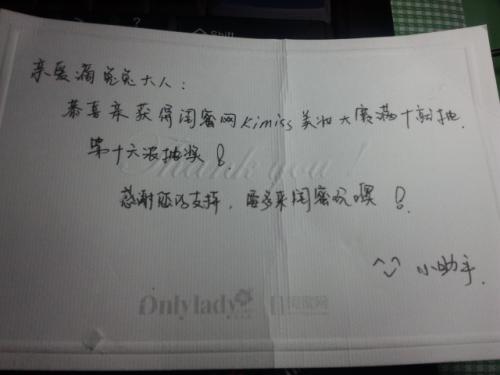 亲爱滴兔兔大人：
恭喜亲获得闺蜜网Kimiss美妆大赛满十就抽
第十六波抽奖！
Thank you!
感谢您的支持，要多来闺蜜玩噢！
^_^ 小助手
Onlylady 闺蜜网
Shift